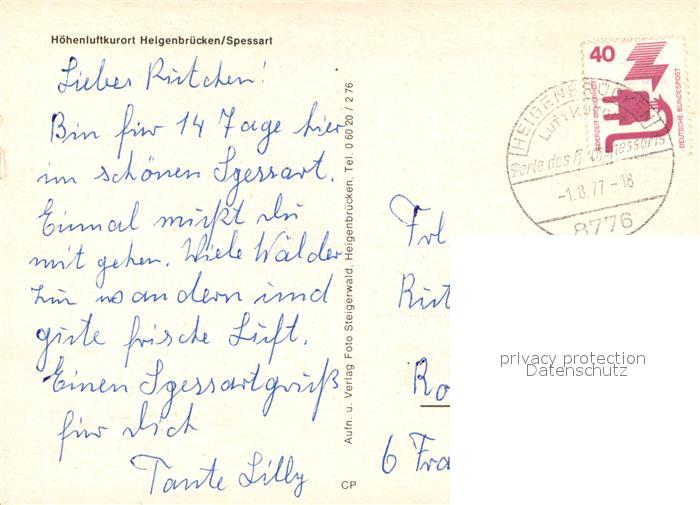 Höhenluftkurort Heigenbrücken/Spessart
Liebes Rutchen!
Bin für 14 Tage hier
im schönen Spessart.
Einmal mußt du
mit gehen. Viele Wälder
zum wandern und
gute frische Luft.
Einen Spessartgruß
für Dich
Tante Lilly
Aufn. u. Verlag Foto Steigerwald, Heigenbrücken, Tel. 0 60 20 / 2 76
CP
40
JEDERZEIT SICHERHEIT
DEUTSCHE BUNDESPOST
HEIGENBRÜCKEN
LUFTKURORT
Perle des Hochspessarts
-1.8.77-18
8776
Frl
Rut
Ro
6 Fra
privacy protection
Datenschutz